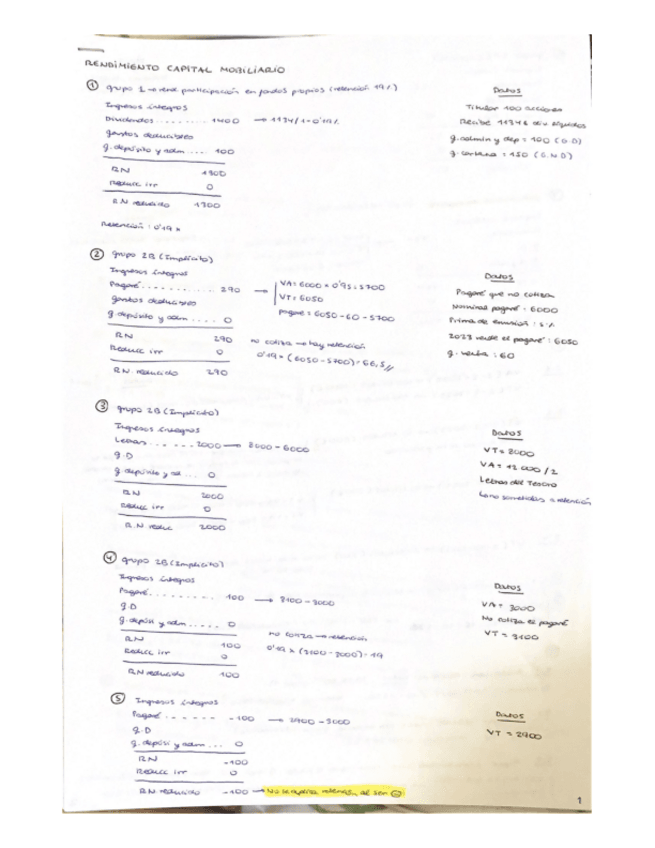 RENDIMIENTO CAPITAL MOBILIARIO
① grupo 1 → rend. participación en fondos propios (retención 19%)
Ingresos íntegros
Dividendos ......... 1400 → 1134/1-0'19%
gastos deducibles
g. depósito y adm .... 100
RN 1300
Reducc irr 0
R.N reducido 1300
Retención: 0'19 x
Datos
Titular 100 acciones
Recibe 1134€ div líquidos
g. admin y dep = 100 (G.D)
g. cartera = 150 (G.N.D)
② grupo 2B (Implícito)
Ingresos íntegros
Pagaré ............ 290 → VA = 6000 x 0'95 = 5700
VT = 6050
gastos deducibles
pagaré = 6050 - 60 - 5700
g. depósito y adm .... 0
RN 290
no cotiza → hay retención
Reducc irr 0
0'19 x (6050 - 5700) = 66,5//
R.N. reducido 290
Datos
Pagaré que no cotiza
Nominal pagaré = 6000
Prima de emisión : 5%
2023 vende el pagaré = 6050
g. venta = 60
③ grupo 2B (Implícito)
Ingresos íntegros
Letras ....... 2000 → 8000 - 6000
g.D
g. depósito y ad ... 0
RN 2000
Reducc irr 0
R.N reduc 2000
Datos
VT = 8000
VA = 12 000 / 2
Letras del Tesoro
↳ no sometidas a retención
④ grupo 2B (Implícito)
Ingresos íntegros
Pagaré .......... 100 → 3100 - 3000
g.D
g. depósi y adm .... 0
RN 100
no cotiza → retención
Reducc irr 0
0'19 x (3100 - 3000) = 19
RN reducido 100
Datos
VA = 3000
No cotiza el pagaré
VT = 3100
⑤ Ingresos íntegros
Pagaré ....... -100 → 2900 - 3000
g.D
g. depósi y adm ... 0
RN -100
Reducc irr 0
RN reducido -100 → No se aplica retención al ser ⊖
Datos
VT = 2900
1